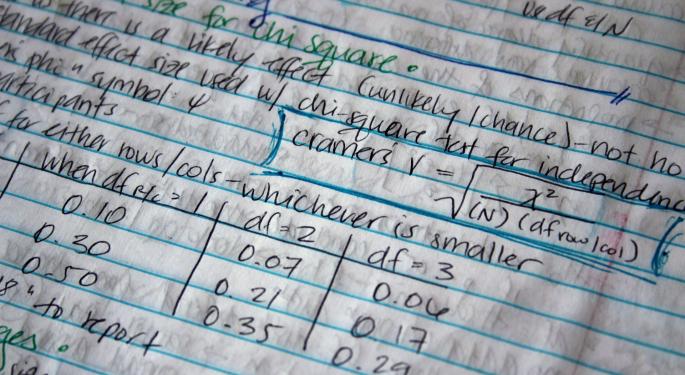 size for chi square.
ve df &/N
there is a likely effect (unlikely/chance) - not no
standard effect size used w/ chi-square test for independence
phi" symbol: φ
participants
cramers V = √ χ² / (N)(df row/col)
for either rows/cols - whichever is smaller
when df r/c = 1 | df = 2 | df = 3
0.10 | 0.07 | 0.06
0.30 | 0.21 | 0.17
0.50 | 0.35 | 0.29
" to report